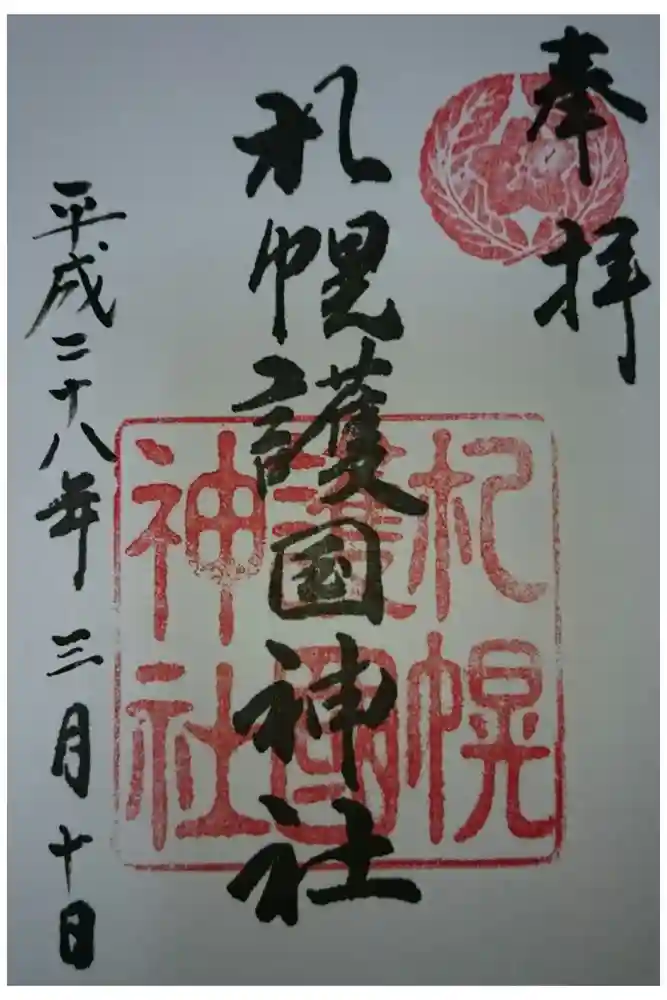 奉拝
札幌護国神社
札幌護國神社
平成二十八年三月十日